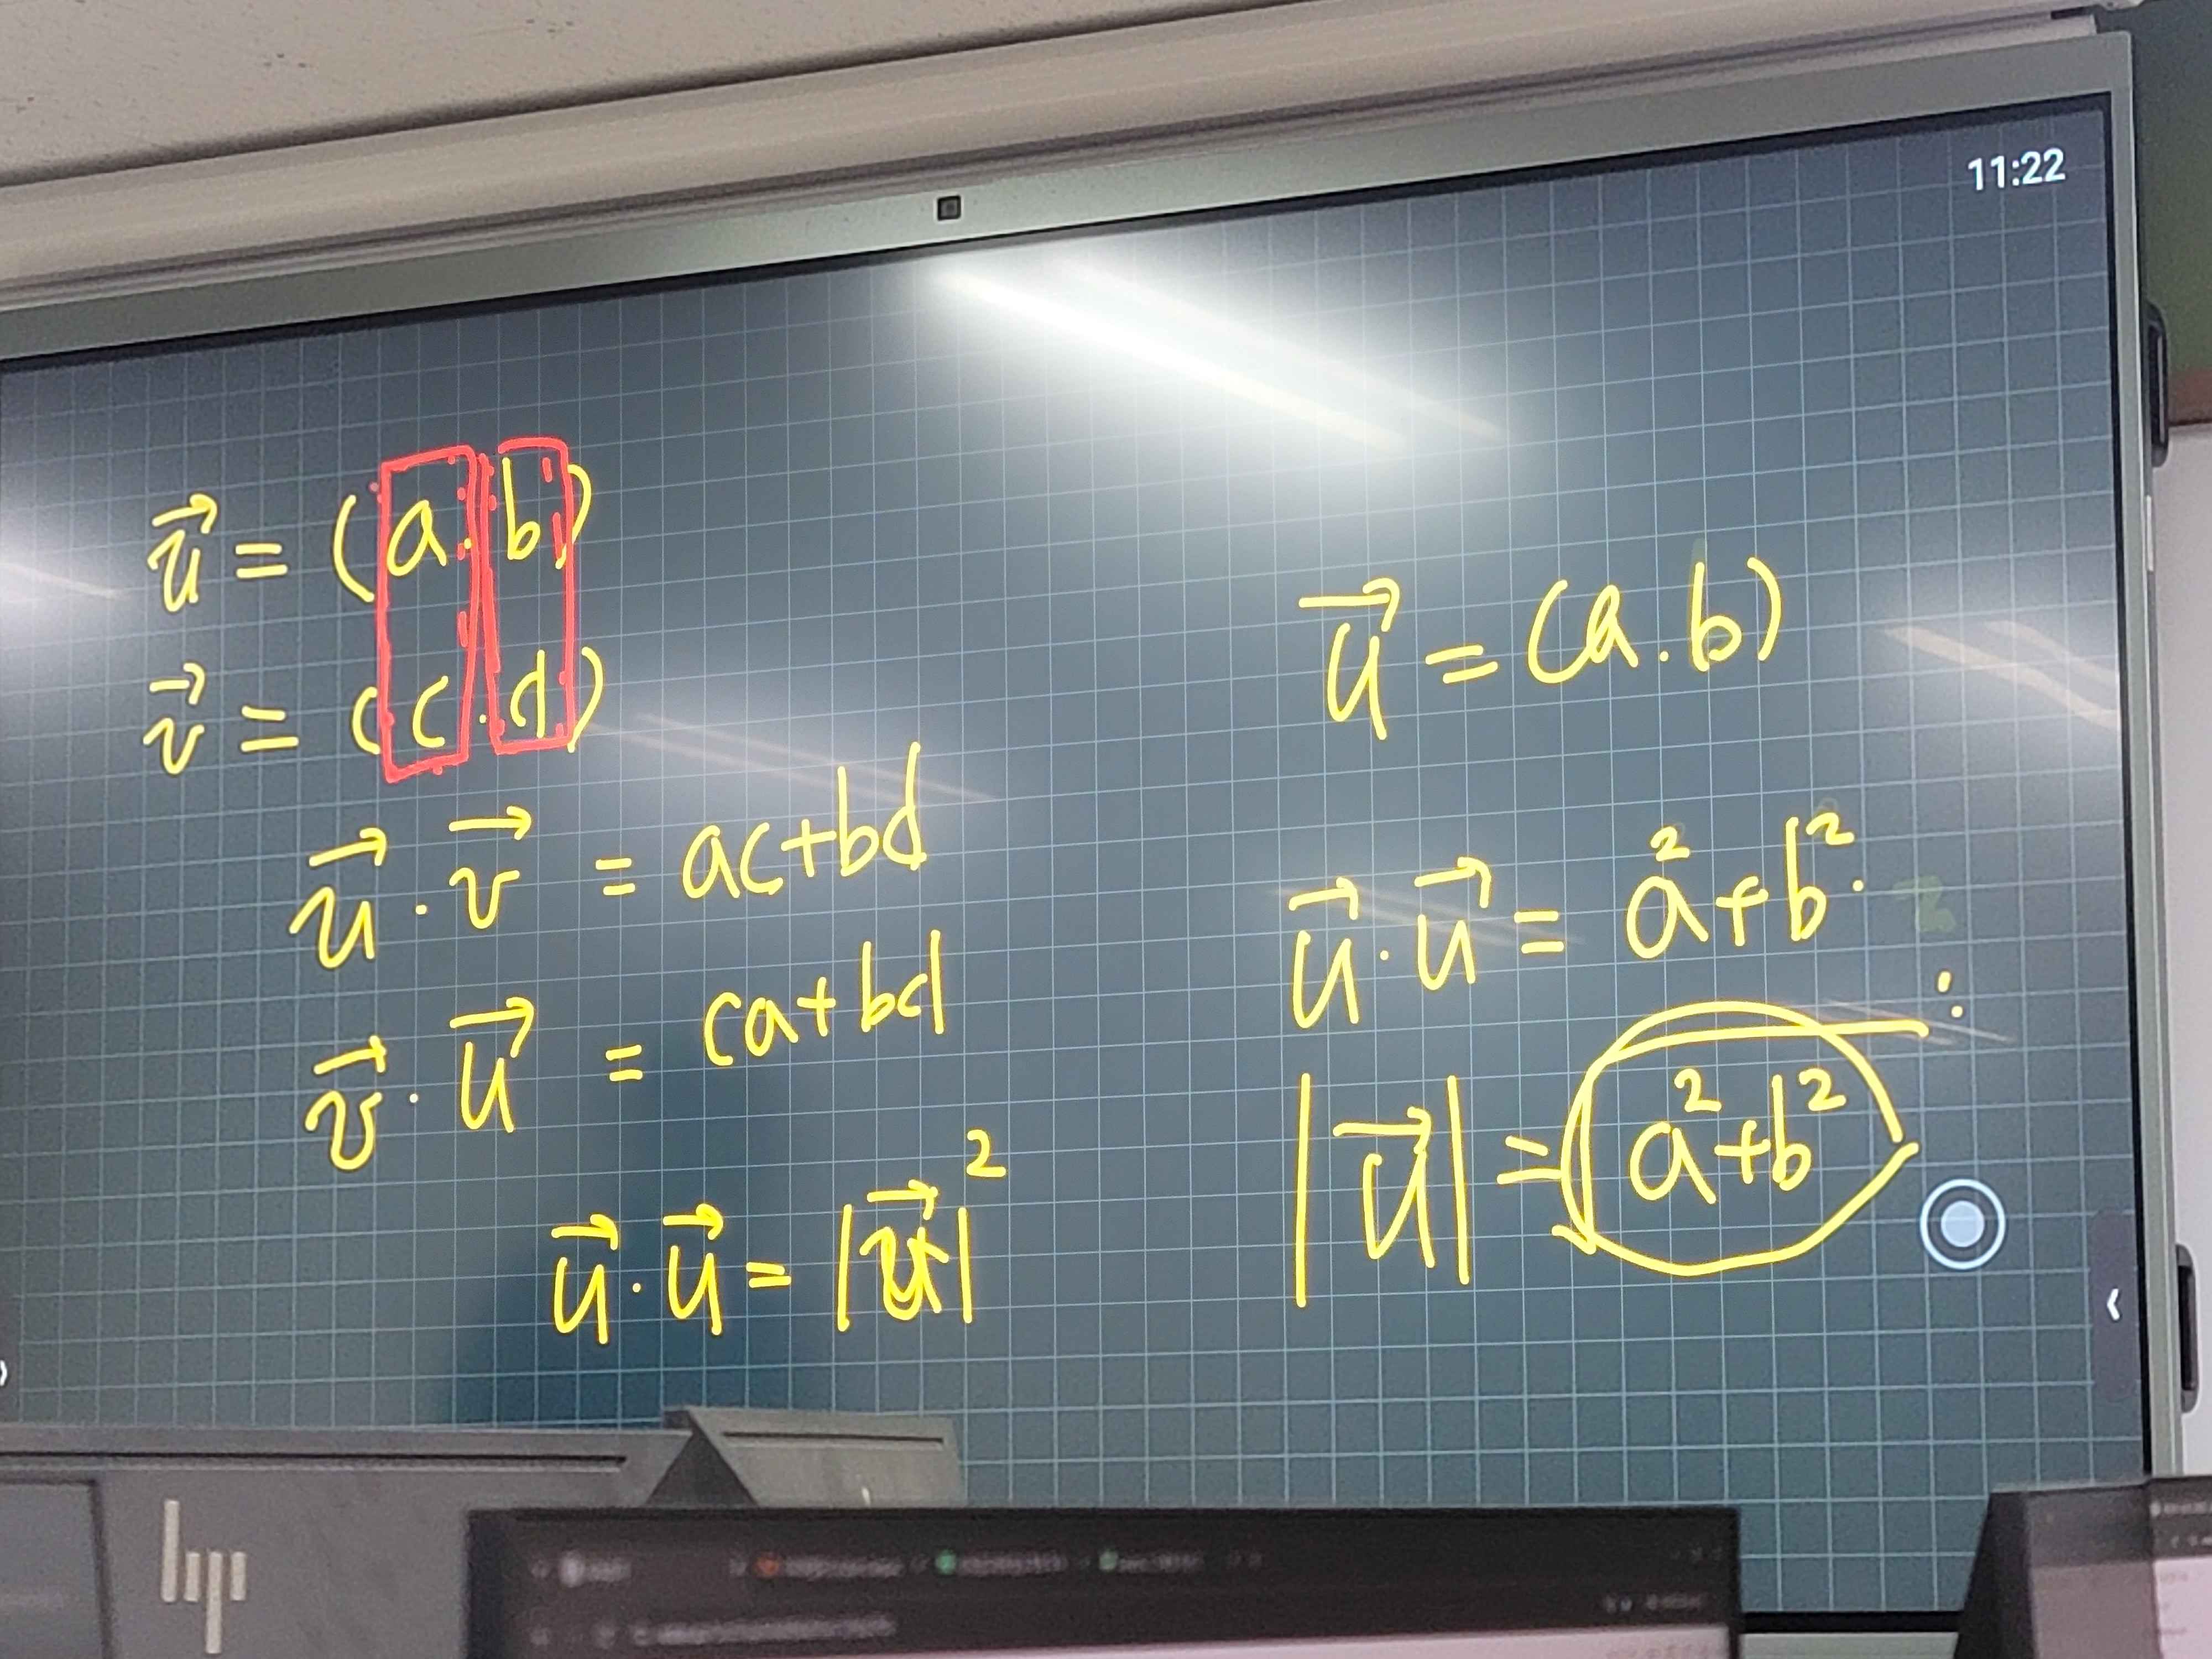 11:22
u⃗ = (a.b)
v⃗ = (c.d)
u⃗ · v⃗ = ac+bd
v⃗ · u⃗ = ca+bd
u⃗ · u⃗ = |u⃗|²
u⃗ = (a.b)
u⃗ · u⃗ = a²+b².
|u⃗| = √a²+b²
hp